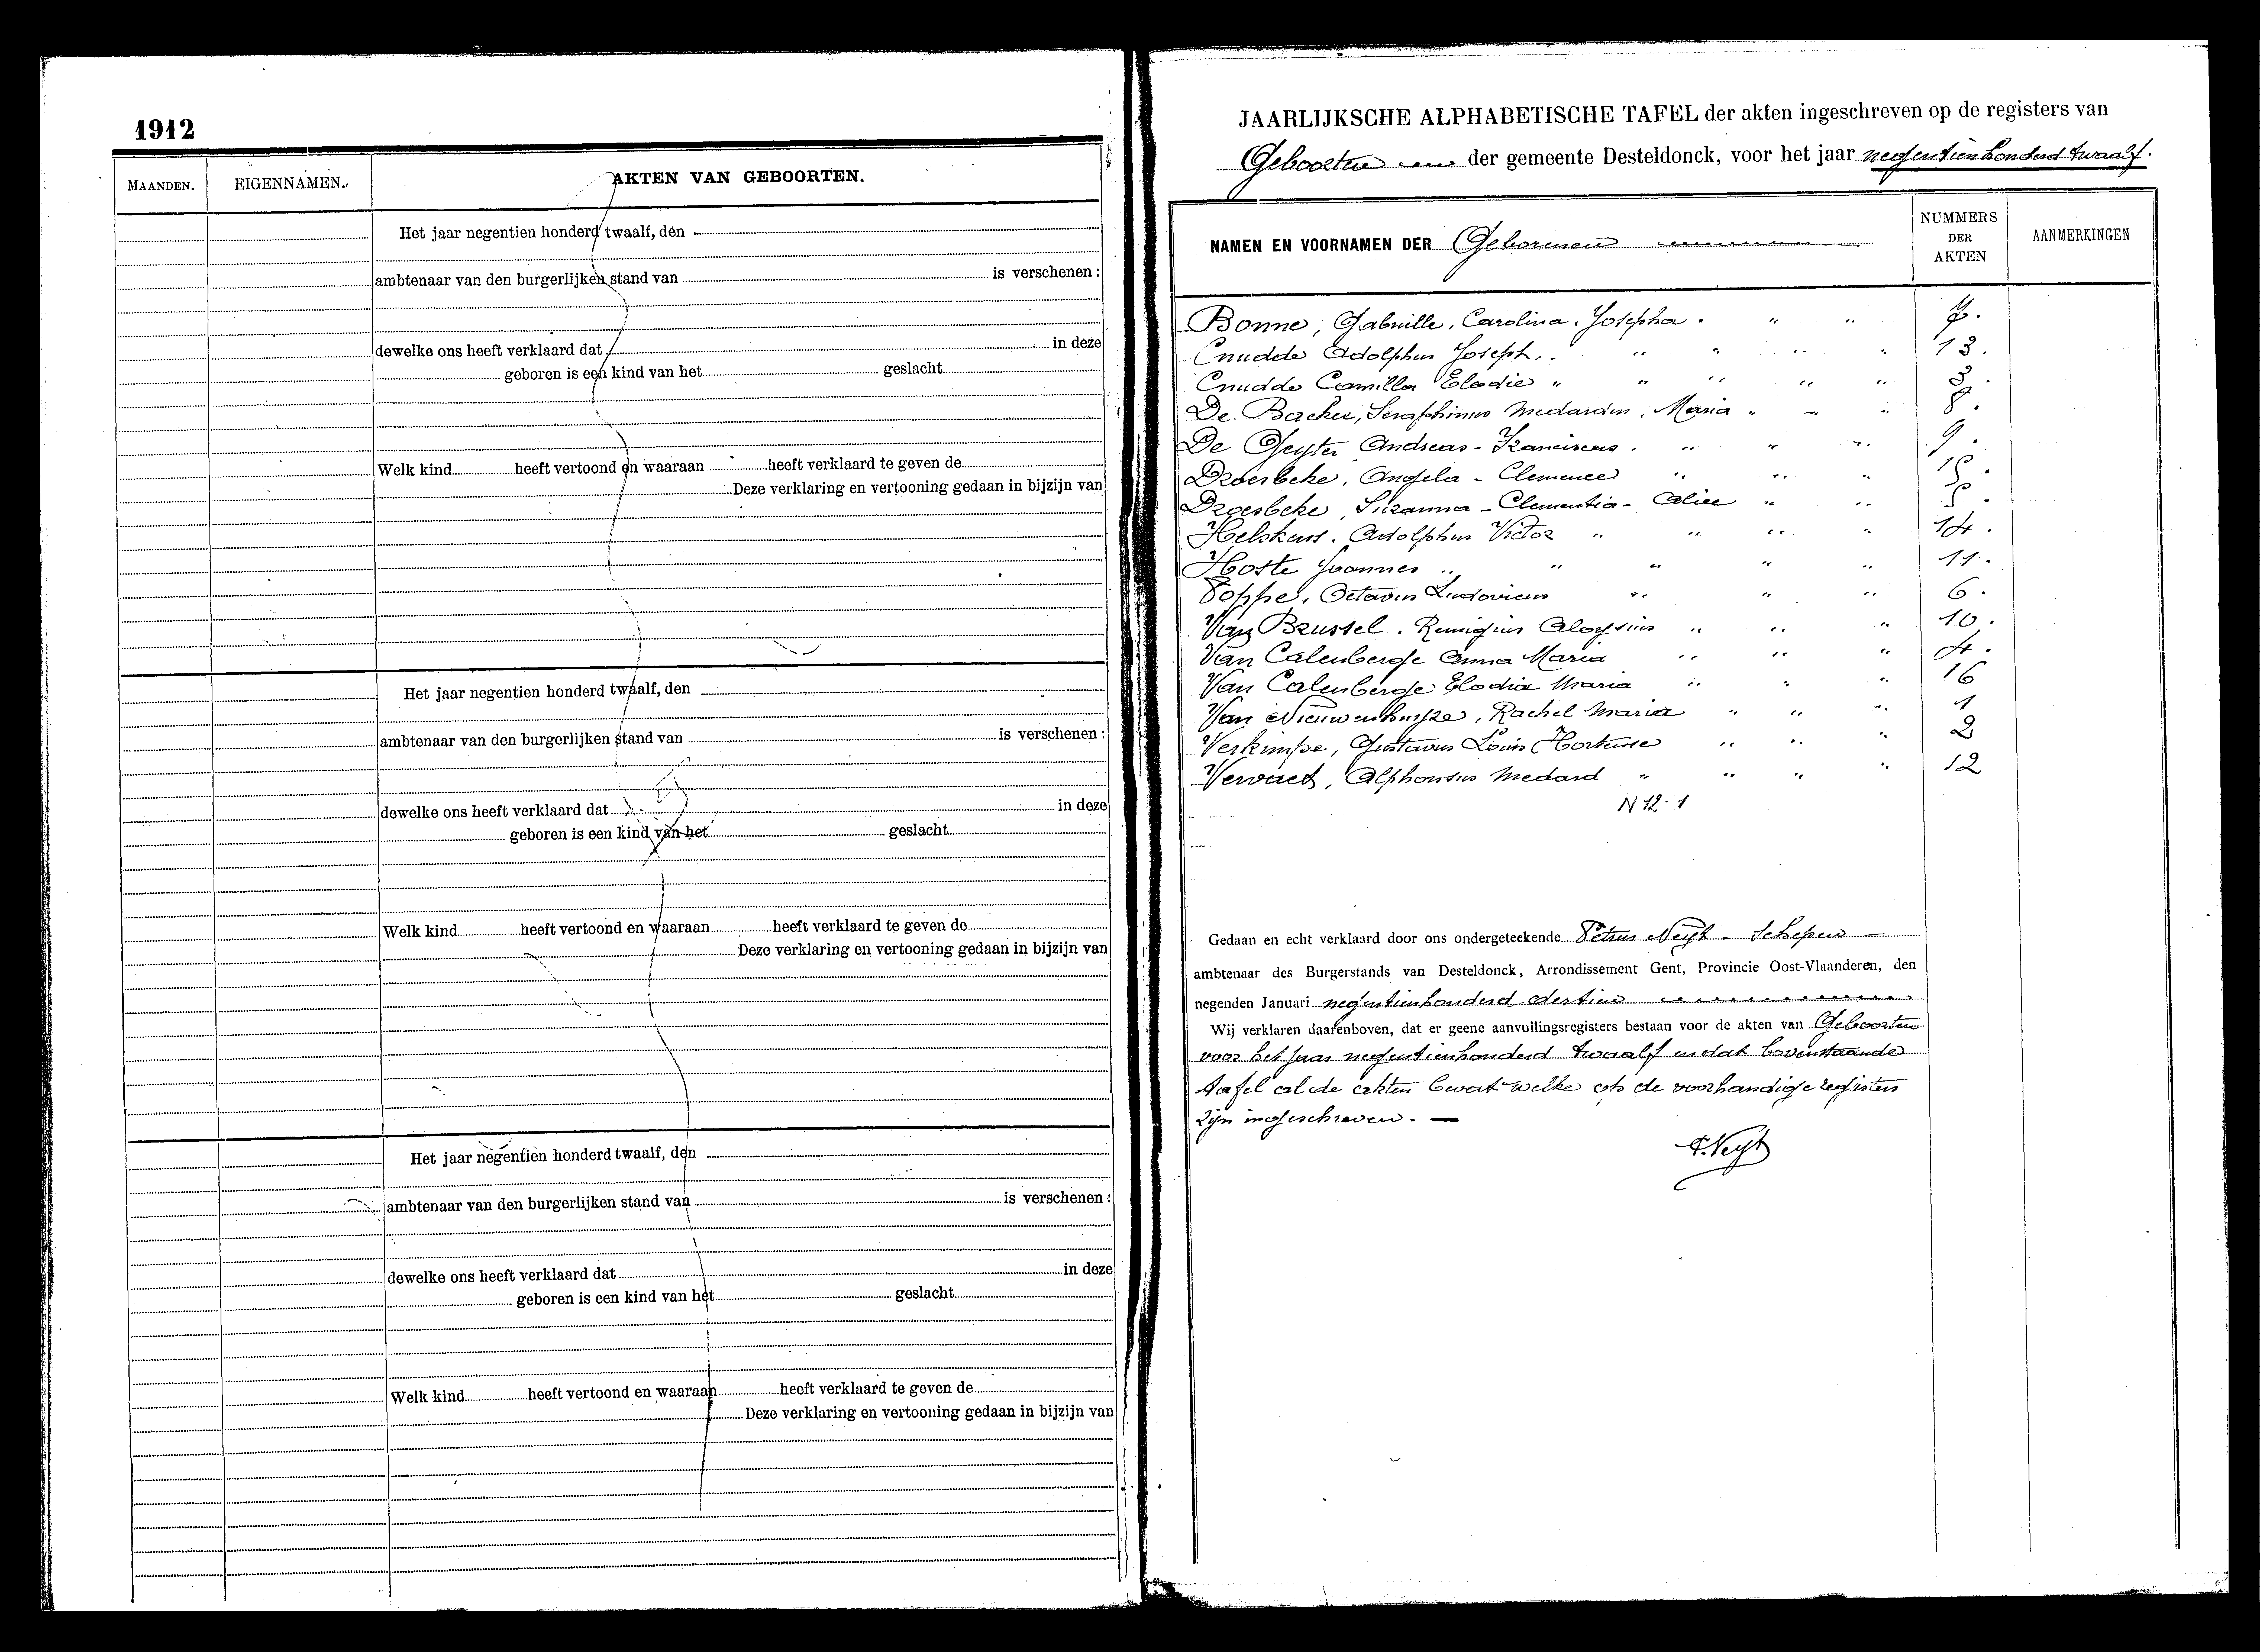 1912
MAANDEN. EIGENNAMEN. AKTEN VAN GEBOORTEN.
Het jaar negentien honderd twaalf, den
ambtenaar van den burgerlijken stand van is verschenen:
dewelke ons heeft verklaard dat in deze
geboren is een kind van het geslacht
Welk kind heeft vertoond en waaraan heeft verklaard te geven de
Deze verklaring en vertooning gedaan in bijzijn van
Het jaar negentien honderd twaalf, den
ambtenaar van den burgerlijken stand van is verschenen:
dewelke ons heeft verklaard dat in deze
geboren is een kind van het geslacht
Welk kind heeft vertoond en waaraan heeft verklaard te geven de
Deze verklaring en vertooning gedaan in bijzijn van
Het jaar negentien honderd twaalf, den
ambtenaar van den burgerlijken stand van is verschenen:
dewelke ons heeft verklaard dat in deze
geboren is een kind van het geslacht
Welk kind heeft vertoond en waaraan heeft verklaard te geven de
Deze verklaring en vertooning gedaan in bijzijn van
JAARLIJKSCHE ALPHABETISCHE TAFEL der akten ingeschreven op de registers van
Geboorten der gemeente Desteldonck, voor het jaar negentienhonderd twaalf.
NAMEN EN VOORNAMEN DER Geborenen NUMMERS DER AKTEN AANMERKINGEN
Bonne, Gabrielle, Carolina, Josepha. " " 7.
Cnudde Adolphus Joseph. " " " " 13.
Cnudde Camilla Elodie " " " " " 3.
De Backer, Seraphinus Medardus, Maria " " " 8.
De Geyter Andreas - Franciscus. " " " 9.
Droesbeke, Angela - Clemence " " " 15.
Droesbeke, Suzanna - Clementia - Alice " " 5.
Helskens. Adolphus Victor " " " " 14.
Hoste Joannes " " " " " 11.
Poppe, Octavus Ludovicus " " " 6.
Van Brussel. Remigius Aloysius " " " 10.
Van Calenberge Anna Maria " " " 4.
Van Calenberge Elodia Maria " " " 16
Van Nieuwenhuyze, Rachel Maria " " " 1
Verkimpe, Gustavus Louis Hortense " " " 2
Vervaet, Alphonsus Medard " " " " 12
N 12. 1
Gedaan en echt verklaard door ons ondergeteekende Petrus Neyt - Schepen -
ambtenaar des Burgerstands van Desteldonck, Arrondissement Gent, Provincie Oost-Vlaanderen, den
negenden Januari negentienhonderd dertien
Wij verklaren daarenboven, dat er geene aanvullingsregisters bestaan voor de akten van Geboorten
voor het jaar negentienhonderd twaalf en dat bovenstaande
tafel al de akten bevat welke op de voorhandige registers
zijn ingeschreven. -
P. Neyt